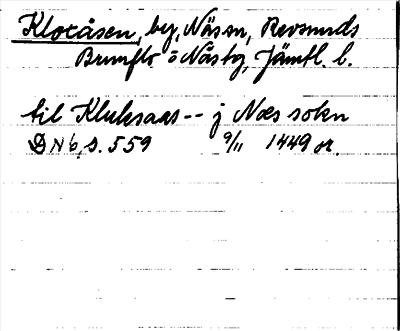 Klocåsen, by, Näs sn, Revsunds
Brunflo o Näs tg, Jämtl. l.
til Kluksaas -- j Næs sokn
DN 6, s. 559 9/11 1449 or.